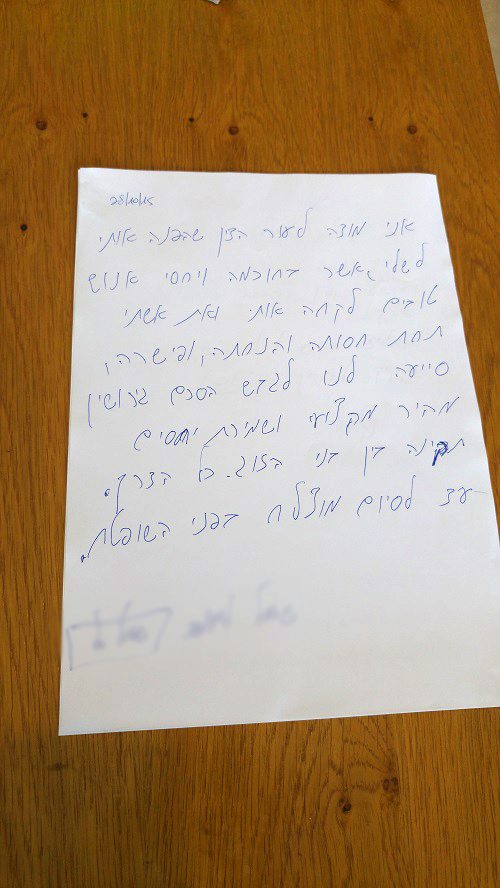 28/10/15
אני מודה לעור הדין שהפנה אותי
לשלי, אשר בחוכמה ויחסי אנוש
טובים לקחה אותי ואת אשתי
תחת חסותה והנחתה, ופישרה,
סייעה לנו לגבש הסכם גירושין
מהיר מקצועי ושמירת יחסים
תקינה בין בני הזוג. כל הדרך.
עד לסיום מוצלח בפני השופטת.